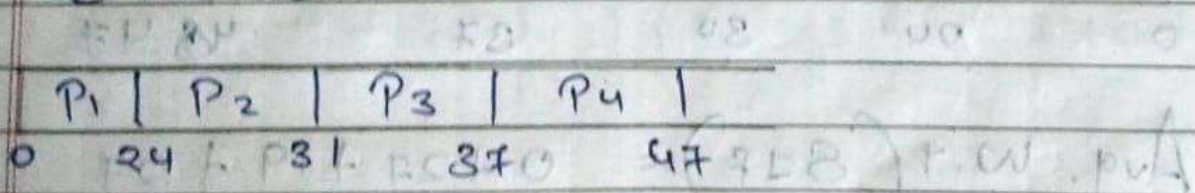 P1 | P2 | P3 | P4 |
0 24 31 37 47